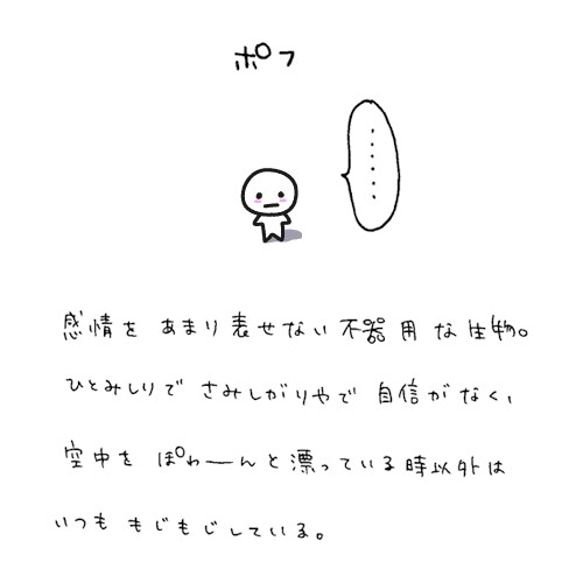 ポフ
......
感情を あまり表せない不器用な生物。
ひとみしりで さみしがりやで 自信がなく、
空中を ぽわーんと漂っている時以外は
いつも もじもじしている。